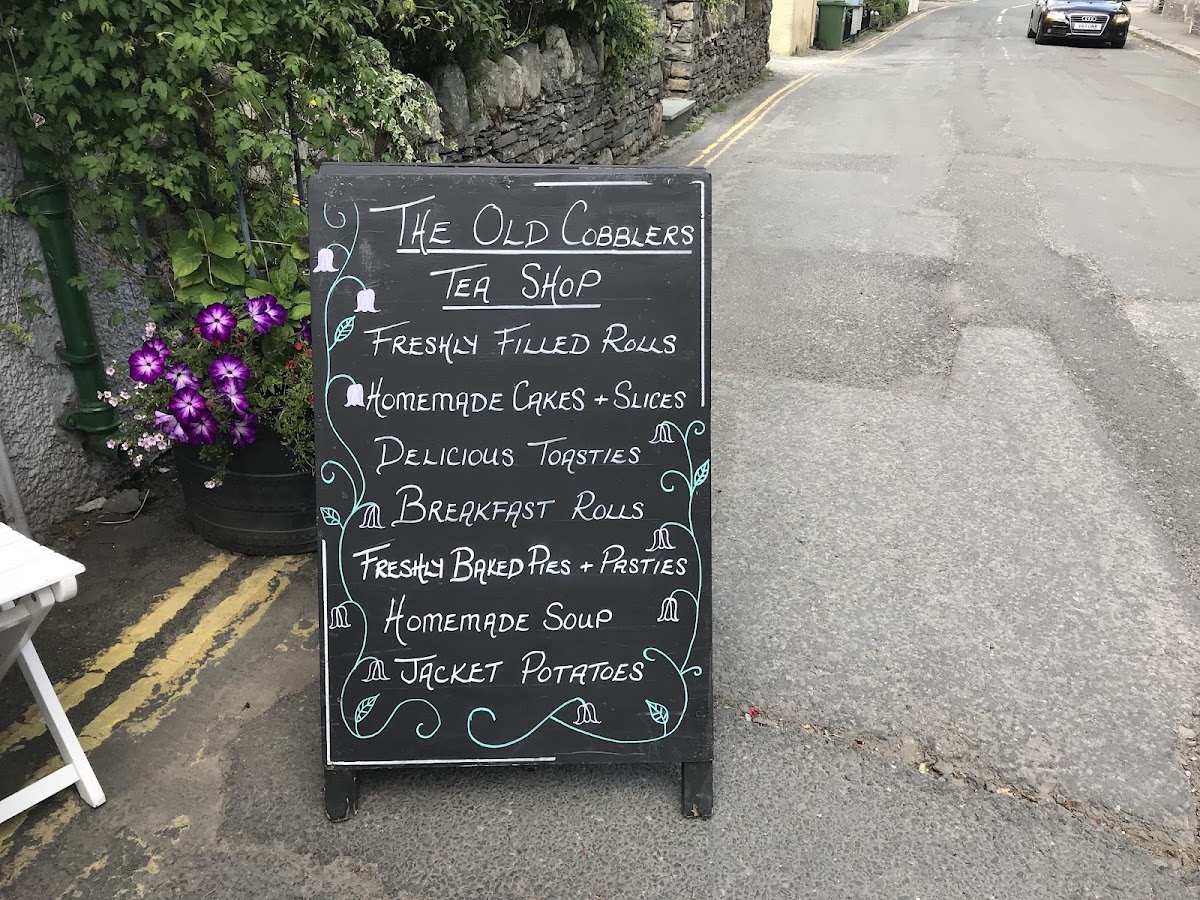 The Old Cobblers
Tea Shop
Freshly Filled Rolls
Homemade Cakes + Slices
Delicious Toasties
Breakfast Rolls
Freshly Baked Pies + Pasties
Homemade Soup
Jacket Potatoes